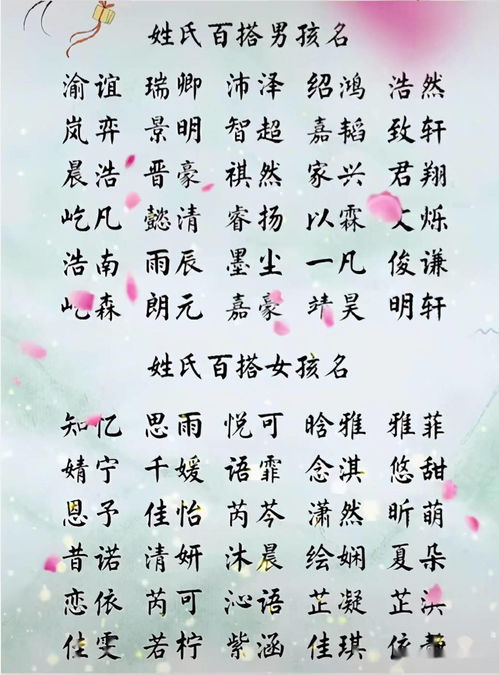 姓氏百搭男孩名
渝谊 瑞卿 沛泽 绍鸿 浩然
岚弈 景明 智超 嘉韬 致轩
晨浩 晋豪 祺然 家兴 君翔
屹凡 懿清 睿扬 以霖 文烁
浩南 雨辰 墨尘 一凡 俊谦
屹森 朗元 嘉豪 靖昊 明轩
姓氏百搭女孩名
知忆 思雨 悦可 晗雅 雅菲
婧宁 千媛 语霏 念淇 悠甜
恩予 佳怡 芮芩 潇然 昕萌
昔诺 清妍 沐晨 绘娴 夏朵
恋依 芮可 沁语 芷凝 芷淇
佳雯 若柠 紫涵 佳琪 依静